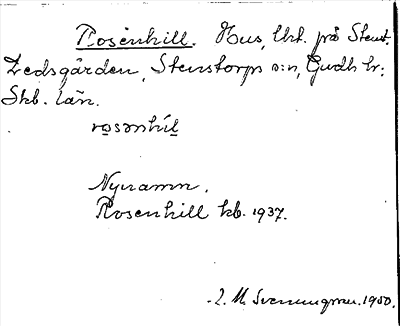 Rosenhill. Hus, lht. på Stens-
Zedsgården, Stenstorps s:n, Gudh hr.
Skb. län.
rosənhil
Nynamn.
Rosenhill kb. 1937.
J. M. Svenungsson. 1950.